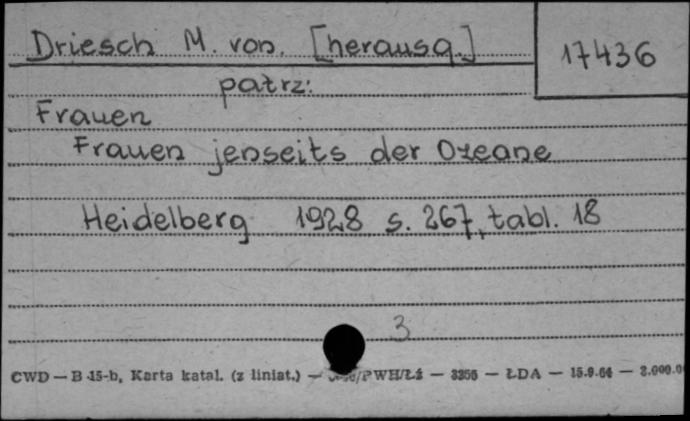 Driesch M. von. [herausg.]
17436
patrz:
Frauen
Frauen jenseits der Ozeane
Heidelberg 1928 s. 267, tabl. 18
3
CWD — B 15-b, Karta katal. (z liniat.) — /PWH/Łź — 3356 — ŁDA — 15.9.64 — 2.000.0